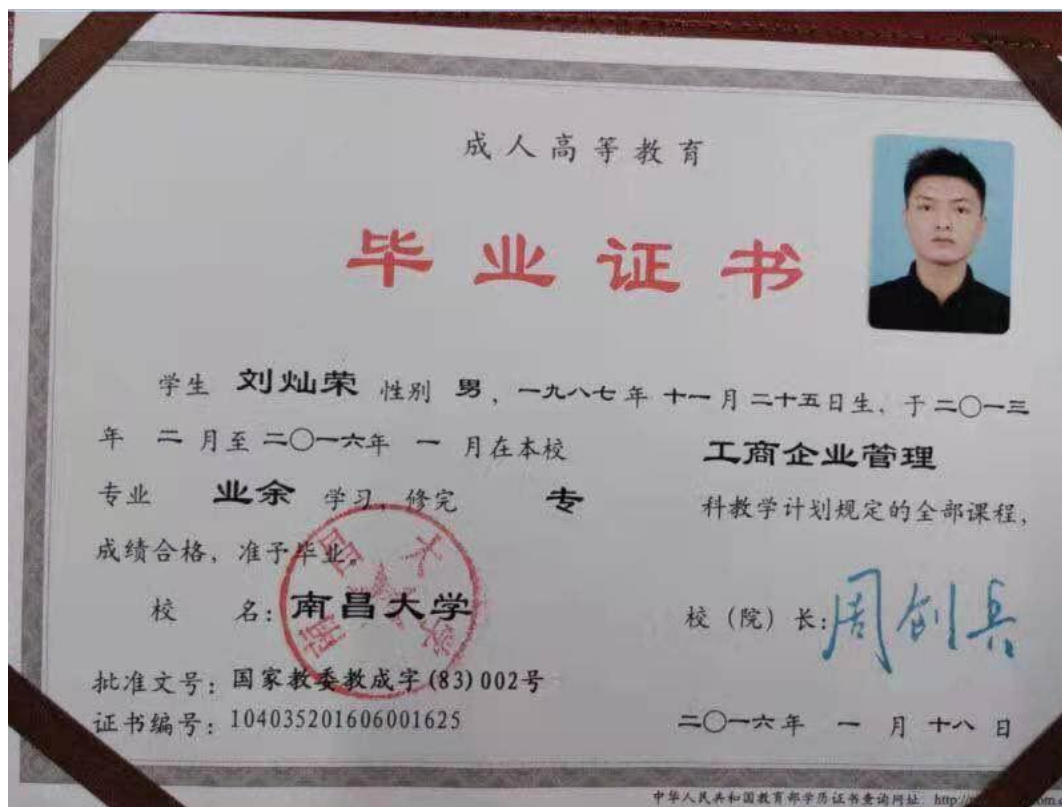 成人高等教育
毕业证书
学生 刘灿荣 性别 男，一九八七年 十一月 二十五日生，于二〇一三
年 二 月至 二〇一六年 一 月在本校 工商企业管理
专业 业余 学习，修完 专 科教学计划规定的全部课程，
成绩合格，准予毕业。
校 名：南昌大学 校（院）长：周创兵
南昌大学
批准文号：国家教委教成字(83)002号
证书编号：104035201606001625 二〇一六年 一 月 十八 日
中华人民共和国教育部学历证书查询网址：http://